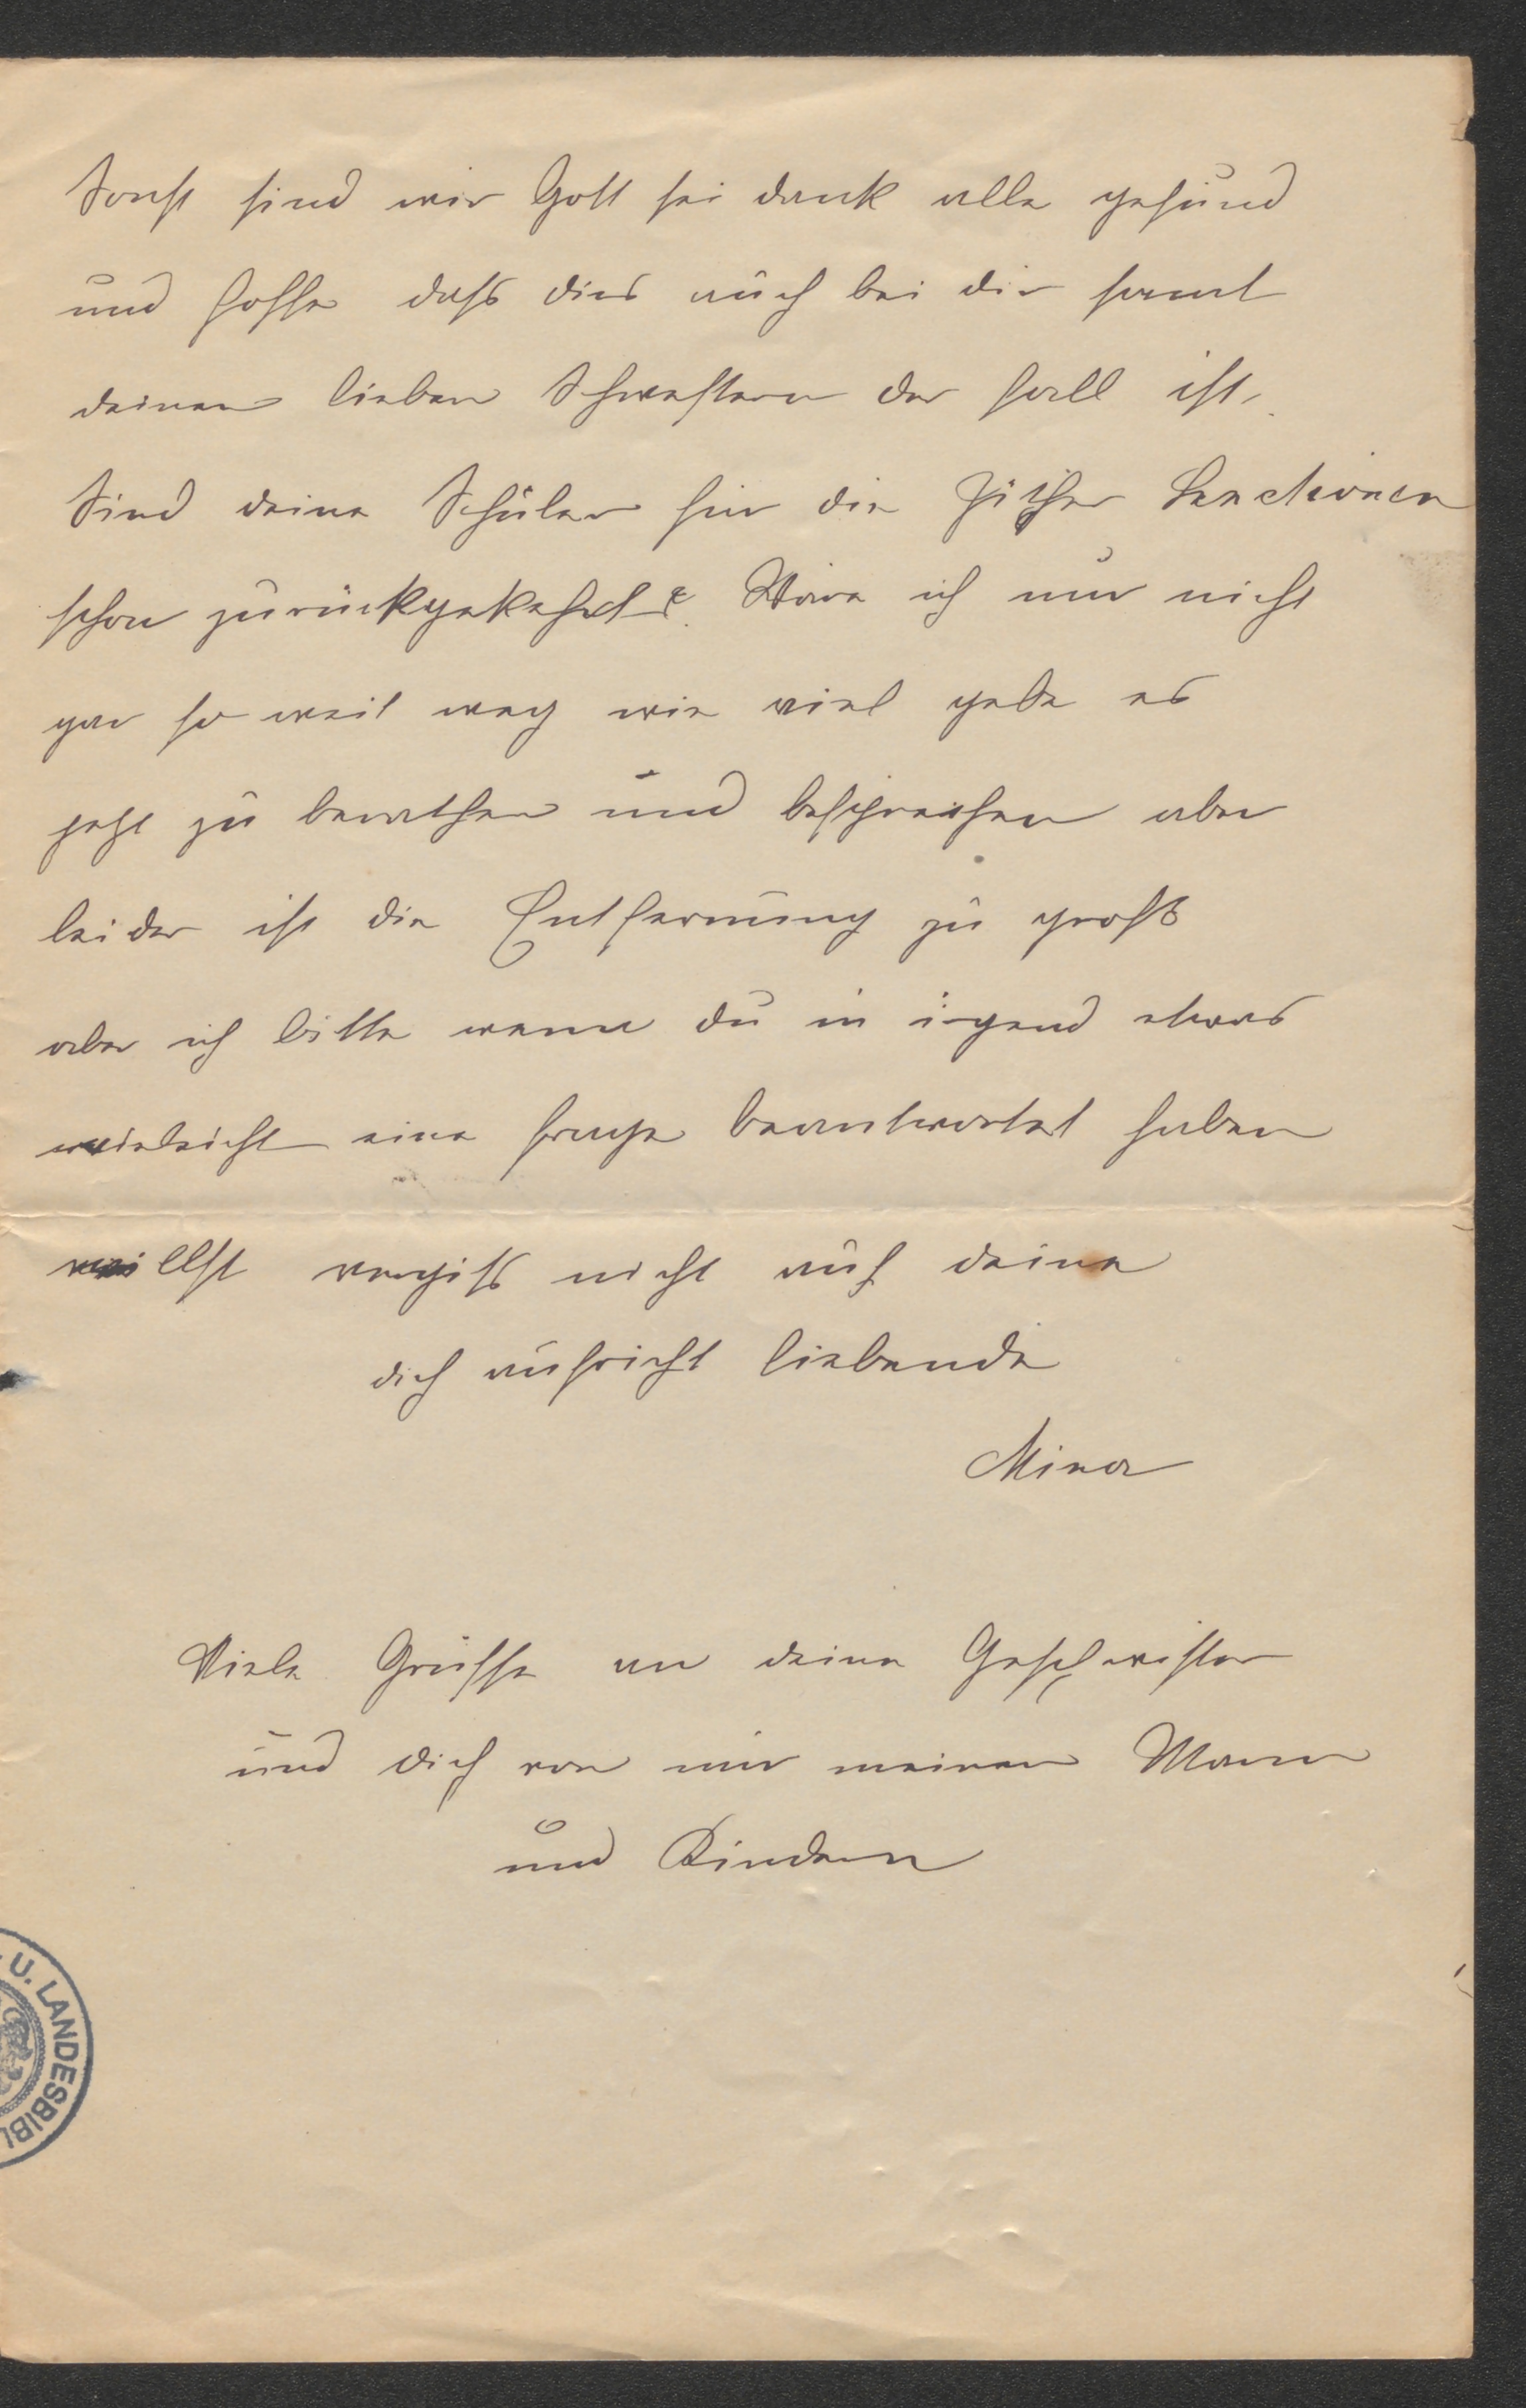 Sonst sind wir Gott sei dank alle gesund
und hoffe dass dies auch bei dir samt
deinen lieben Schwestern der fall ist.
Sind deine Schüler für die Zither Lectionen
schon zurückgekehrt? Wäre ich nur nicht
gar so weit weg wie viel gebe es
jetzt zu berathen und besprechen aber
leider ist die Entfernung zu groß
aber ich bitte wenn du in irgend etwas
vieleicht eine frage beantwortet haben
willst vergiss nicht auf deine
dich aufricht liebende
Mina
Viele Grüsse an deine Geschwister
und dich von mir meinen Mann
und Kindern
U. LANDESBIBL